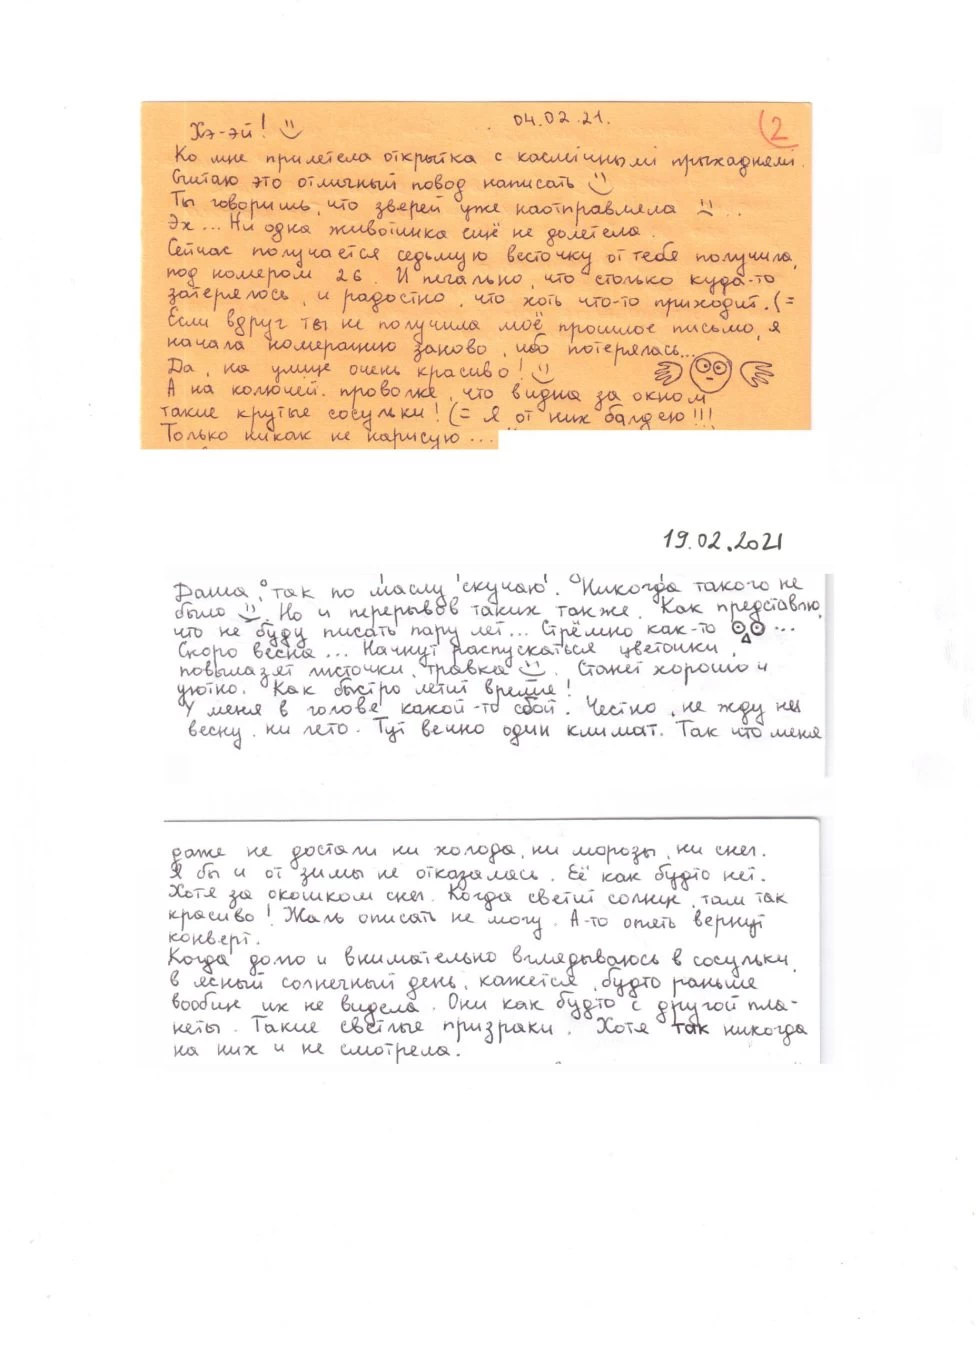 Хэ-эй!
04.02.21.
2
Ко мне прилетела открытка с касмічнымі прыхаднямі.
Считаю это отличный повод написать
Ты говоришь, что зверей уже наотправляла ..
Эх... Ни одна животинка ещё не долетела.
Сейчас получается седьмую весточку от тебя получила,
под номером 26. И печально, что столько куда-то
затерялось, и радостно, что хоть что-то приходит. (=
Если вдруг ты не получила моё прошлое письмо, я
начала нумерацию заново, ибо потерялась...
Да, на улице очень красиво!
А на колючей проволке, что видна за окном
такие крутые сосульки! (= Я от них балдею!!!
Только никак не нарисую...
19.02.2021
Даша, так по маслу скучаю! Никогда такого не
было. Но и перерывов таких также. Как представлю,
что не буду писать пару лет... Стрёмно как-то ...
Скоро весна... Начнут распускаться цветочки,
повылазят листочки, травка. Станет хорошо и
уютно. Как быстро летит время!
У меня в голове какой-то сбой. Честно, не жду ни
весну, ни лето. Тут вечно один климат. Так что меня
даже не достали ни холода, ни морозы, ни снег.
Я бы и от зимы не отказалась. Её как будто нет.
Хотя за окошком снег. Когда светит солнце, там так
красиво! Жаль описать не могу. А-то опять вернут
конверт.
Когда долго и внимательно вглядываюсь в сосульки,
в ясный солнечный день, кажется, будто раньше
вообще их не видела. Они как будто с другой пла-
неты. Такие светлые призраки. Хотя так никогда
на них и не смотрела.